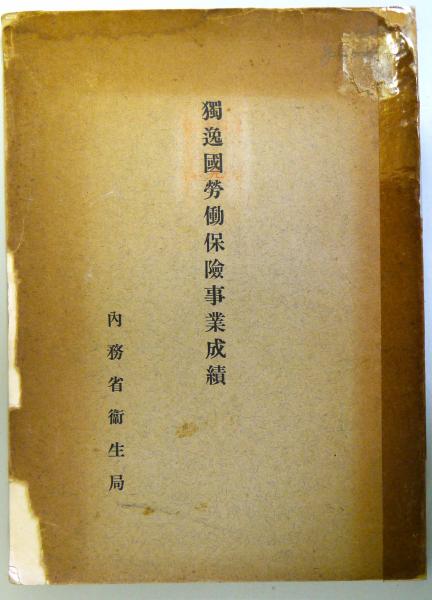 獨逸國勞働保險事業成績
內務省衞生局